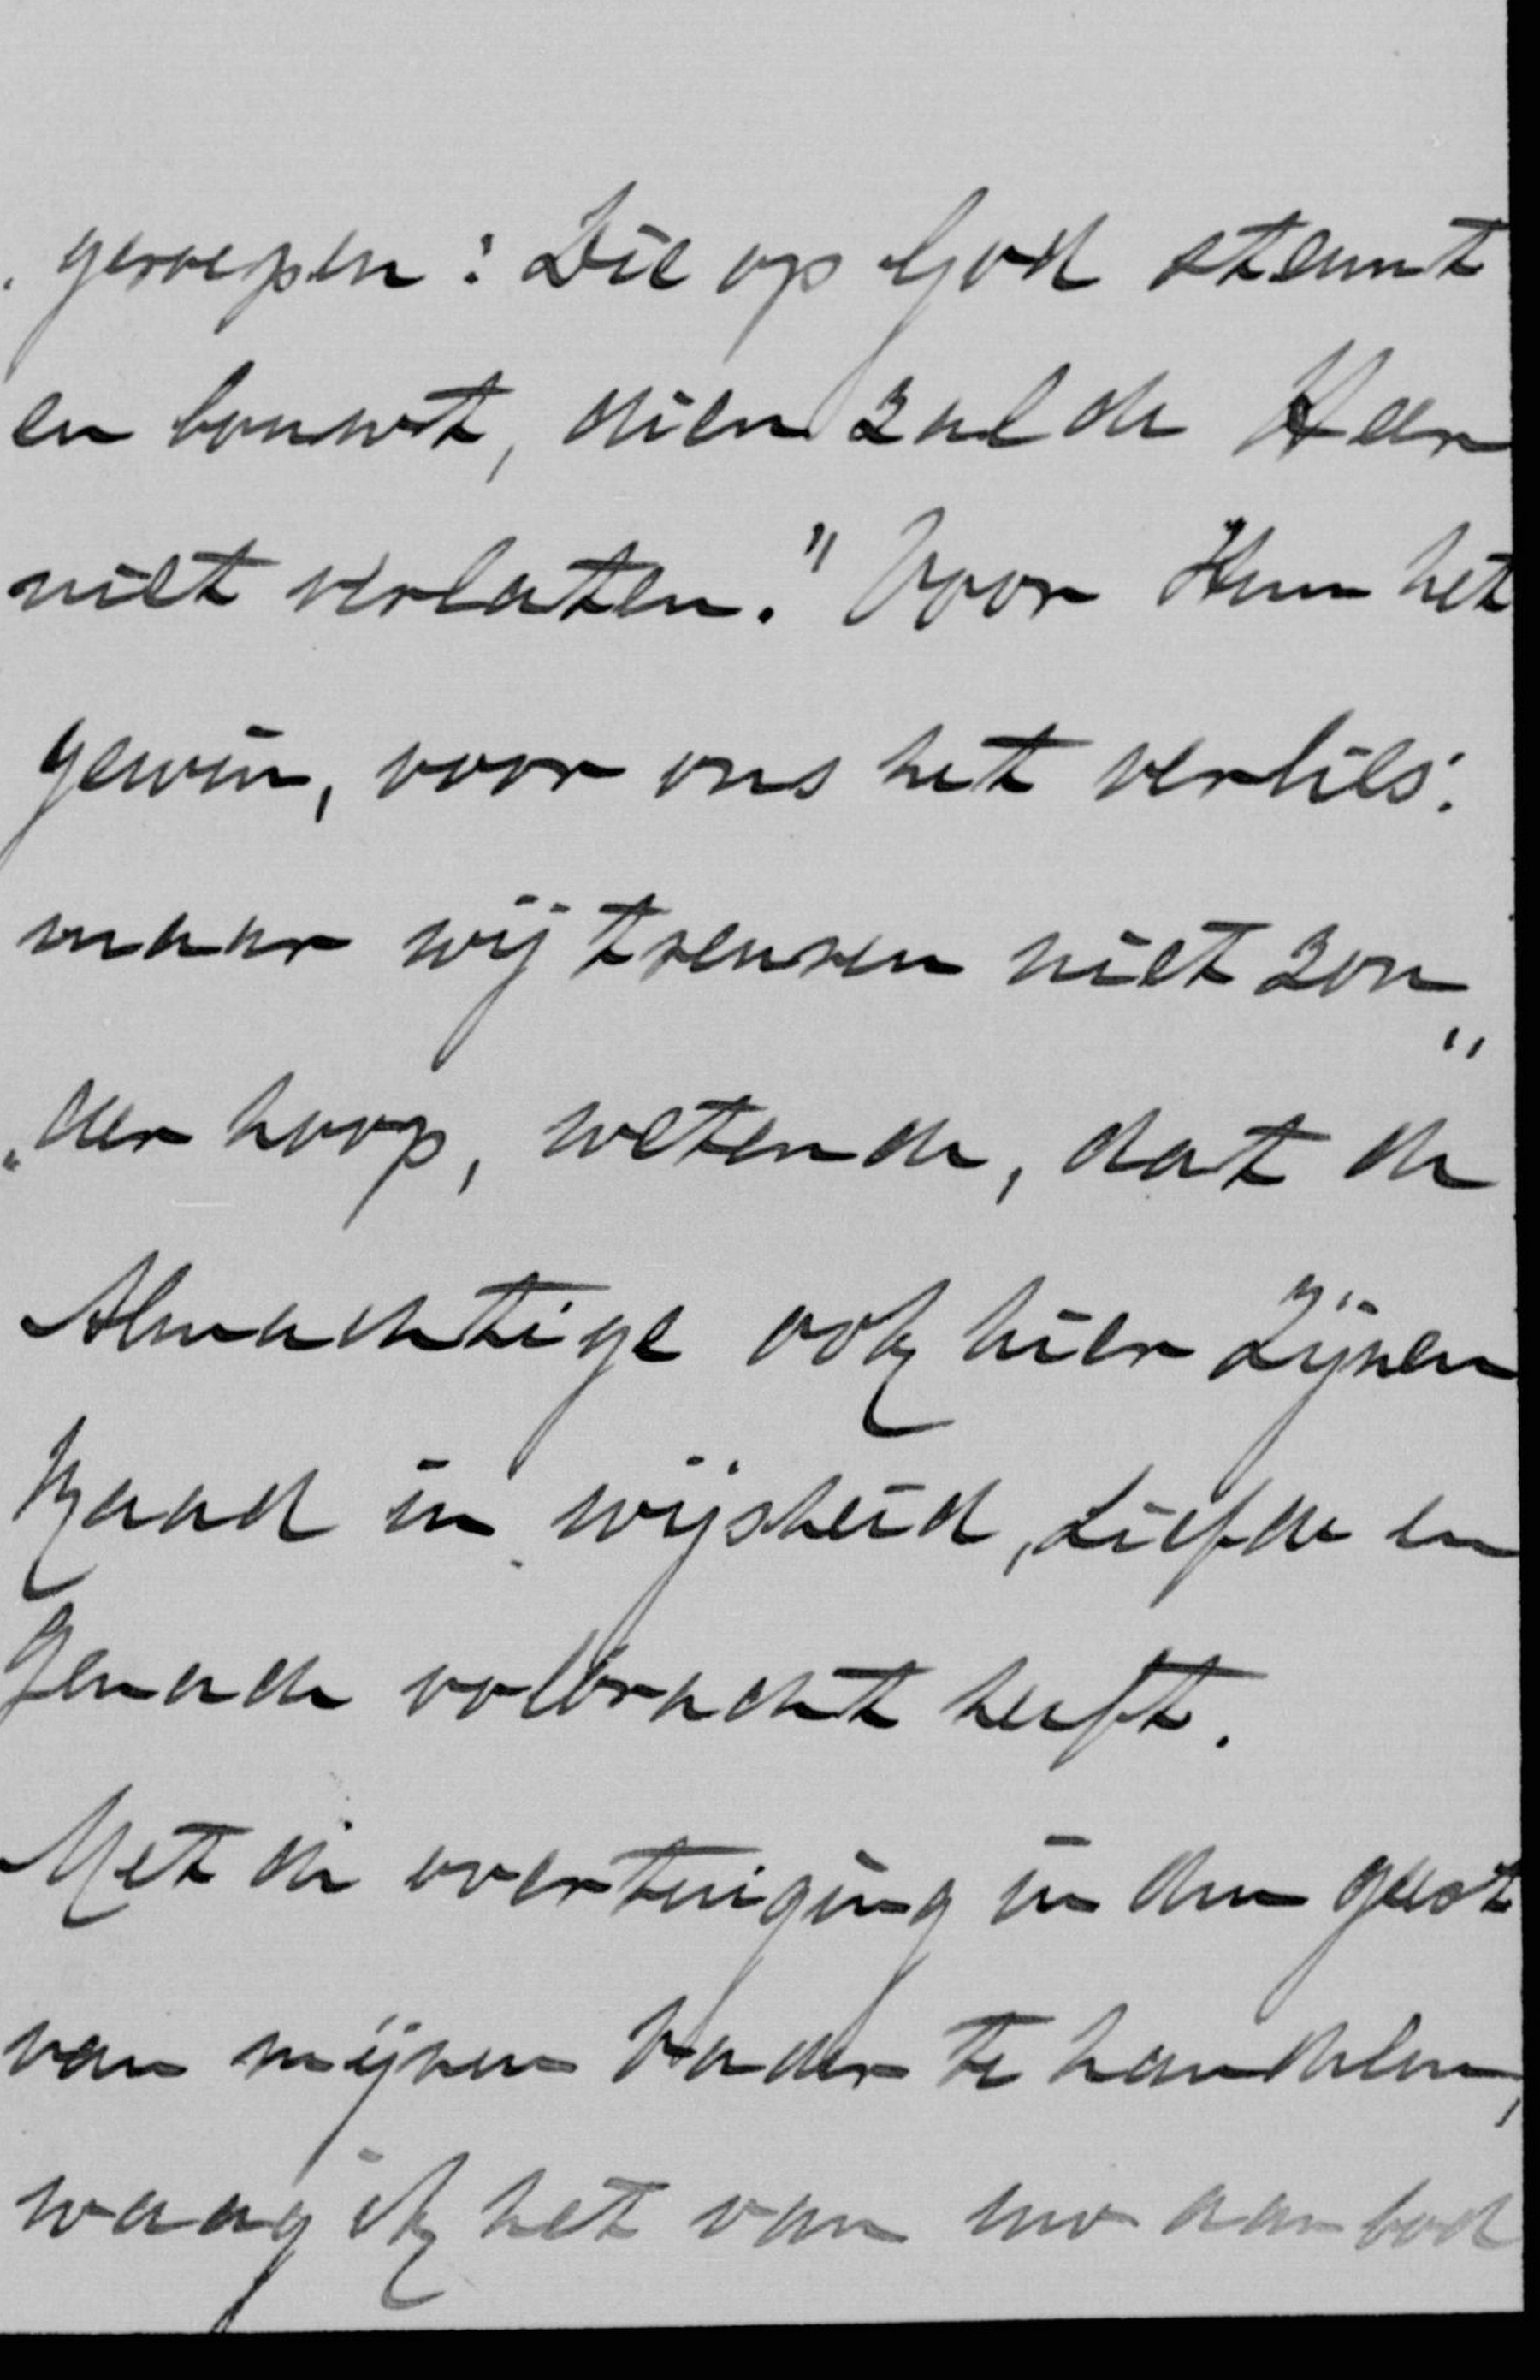 geroepen: Die op God steunt
en bouwt, dien zal de Heer
niet verlaten." Voor Hem het
gewin, voor ons het verlies:
maar wij treuren niet zon„
„der hoop, wetende, dat de
Almachtige ook hier Zijnen
Raad in wijsheid, Liefde en
Genade volbracht heeft.
Met de overtuiging in den geest
van mijnen Vader te handelen,
waag ik het van uw aanbod